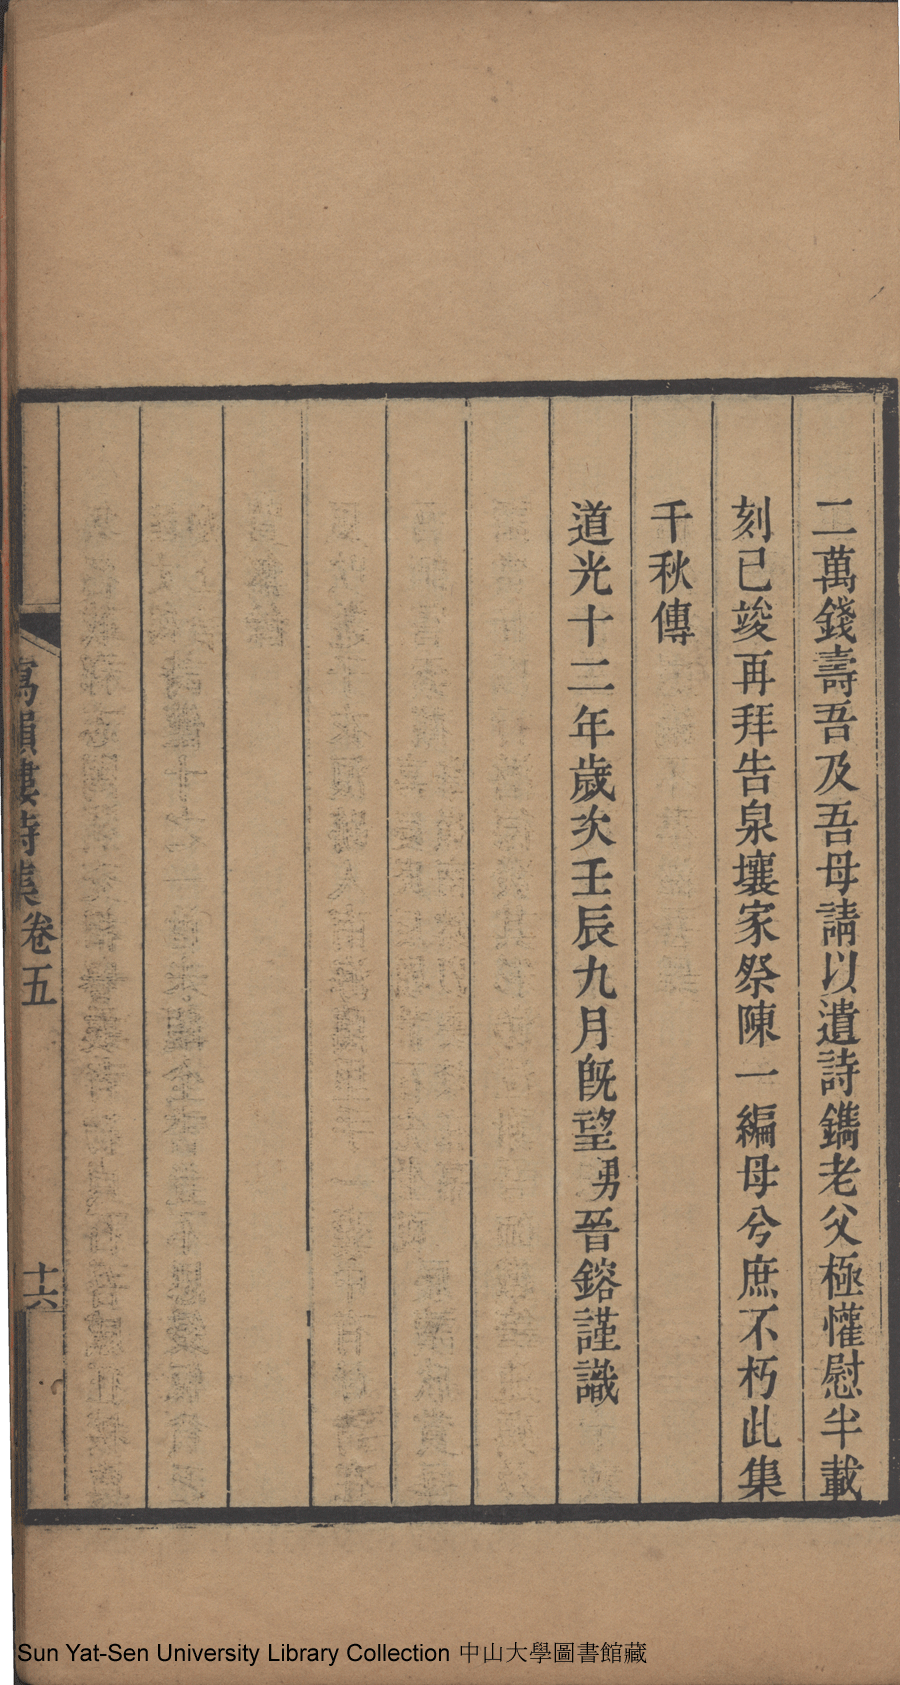 二萬錢壽吾及吾母請以遺詩鐫老父極懽慰半載
刻已竣再拜告泉壤家祭陳一編母兮庶不朽此集
千秋傳
道光十二年歲次壬辰九月旣望男晉鎔謹識
寫韻樓詩集卷五
十六
Sun Yat-Sen University Library Collection 中山大學圖書館藏